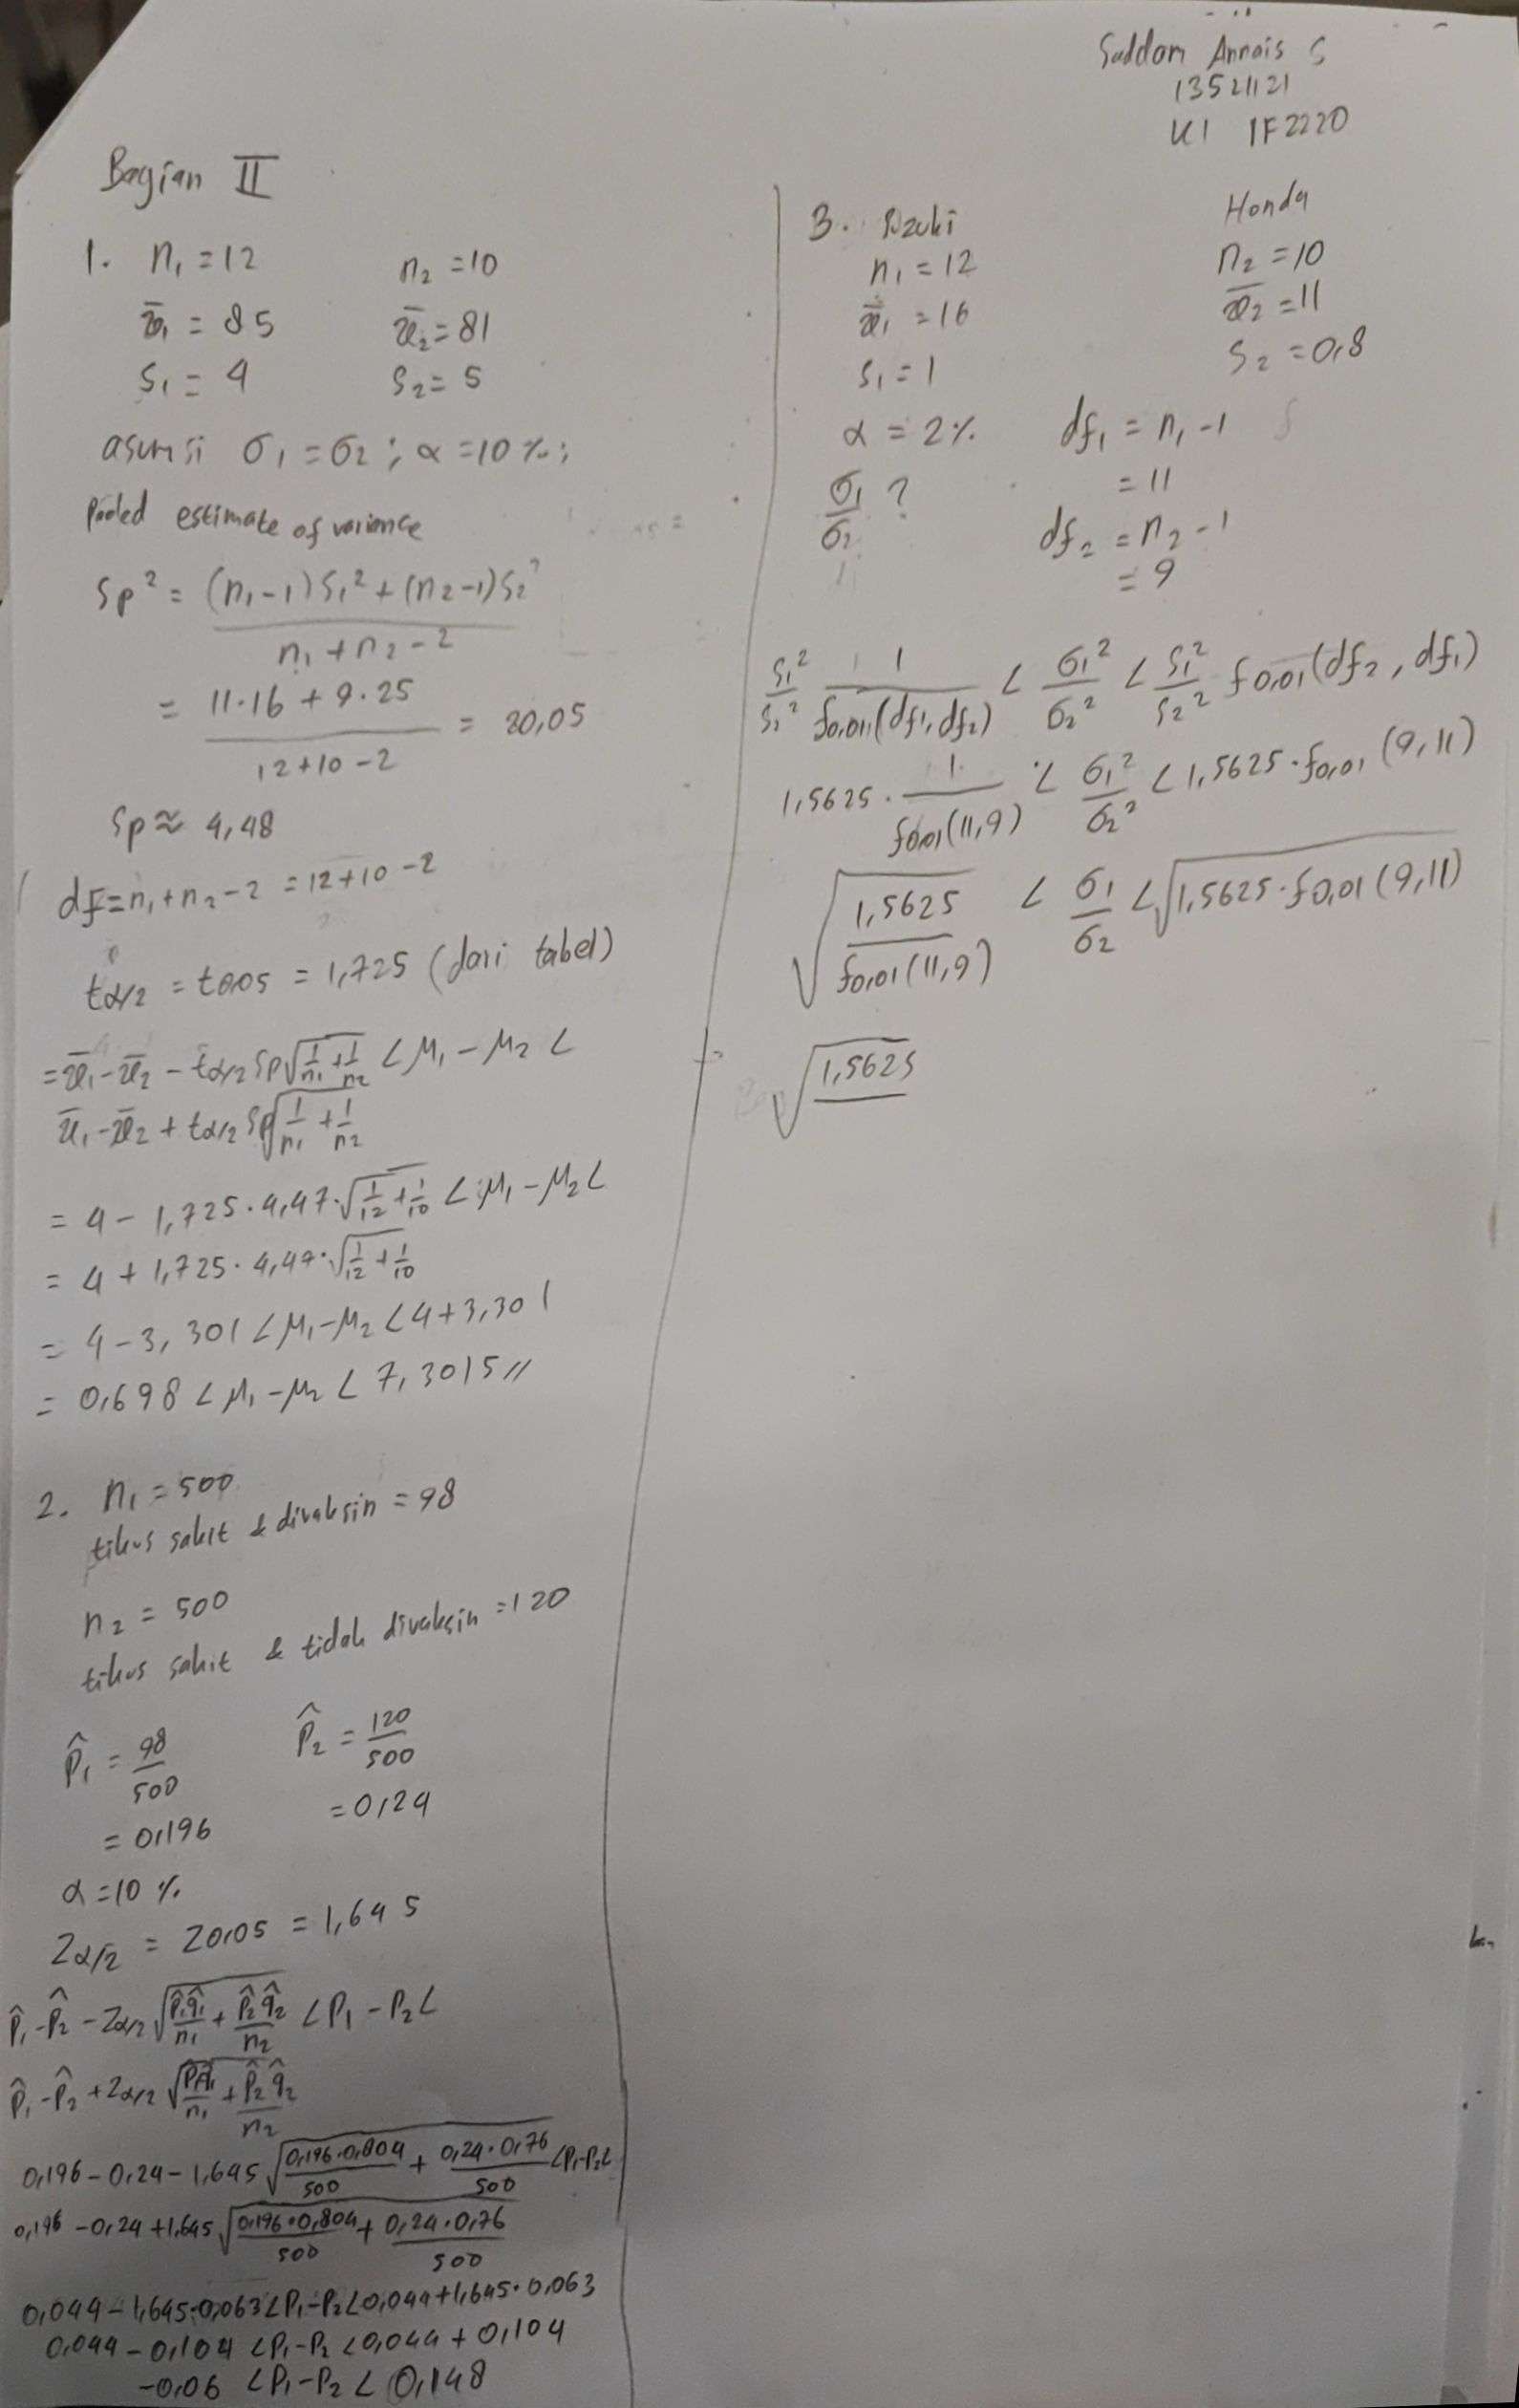 Saddam Annais S
13521121
K1 IF2220
Bagian II
1. n₁ = 12 n₂ = 10
x̄₁ = 85 x̄₂ = 81
s₁ = 4 s₂ = 5
asumsi σ₁ = σ₂ ; α = 10 % ;
Pooled estimate of variance
Sp² = (n₁-1)S₁² + (n₂-1)S₂² / n₁ + n₂ - 2
= 11·16 + 9·25 / 12+10-2 = 20,05
Sp ≈ 4,48
df = n₁+n₂-2 = 12+10-2
tα/2 = t0,05 = 1,725 (dari tabel)
= x̄₁-x̄₂ - tα/2 Sp√(1/n₁ + 1/n₂) < μ₁ - μ₂ <
x̄₁-x̄₂ + tα/2 Sp√(1/n₁ + 1/n₂)
= 4 - 1,725 · 4,47·√(1/12 + 1/10) < μ₁ - μ₂ <
= 4 + 1,725 · 4,47·√(1/12 + 1/10)
= 4 - 3,301 < μ₁-μ₂ < 4+3,301
= 0,698 < μ₁-μ₂ < 7,3015 //
2. n₁ = 500
tikus sakit & divaksin = 98
n₂ = 500
tikus sakit & tidak divaksin = 120
p̂₁ = 98/500 p̂₂ = 120/500
= 0,196 = 0,24
α = 10 %
Zα/2 = Z0,05 = 1,645
p̂₁-p̂₂ - Zα/2 √(p̂₁q̂₁/n₁ + p̂₂q̂₂/n₂) < P₁ - P₂ <
p̂₁-p̂₂ + Zα/2 √(p̂₁q̂₁/n₁ + p̂₂q̂₂/n₂)
0,196 - 0,24 - 1,645 √(0,196·0,804/500 + 0,24·0,76/500) < P₁-P₂ <
0,196 - 0,24 + 1,645 √(0,196·0,804/500 + 0,24·0,76/500)
0,044 - 1,645·0,063 < P₁-P₂ < 0,044 + 1,645·0,063
0,044 - 0,104 < P₁-P₂ < 0,044 + 0,104
-0,06 < P₁-P₂ < 0,148
3. Honda
n₁ = 12 n₂ = 10
x̄₁ = 16 x̄₂ = 11
s₁ = 1 s₂ = 0,8
α = 2% df₁ = n₁ - 1
= 11
σ₁/σ₂ ? df₂ = n₂ - 1
= 9
S₁²/S₂² 1/f0,01(df1,df2) < σ₁²/σ₂² < S₁²/S₂² f0,01(df₂, df₁)
1,5625 · 1/f0,01(11,9) < σ₁²/σ₂² < 1,5625 · f0,01 (9,11)
√(1,5625/f0,01(11,9)) < σ₁/σ₂ < √(1,5625·f0,01(9,11))
√1,5625